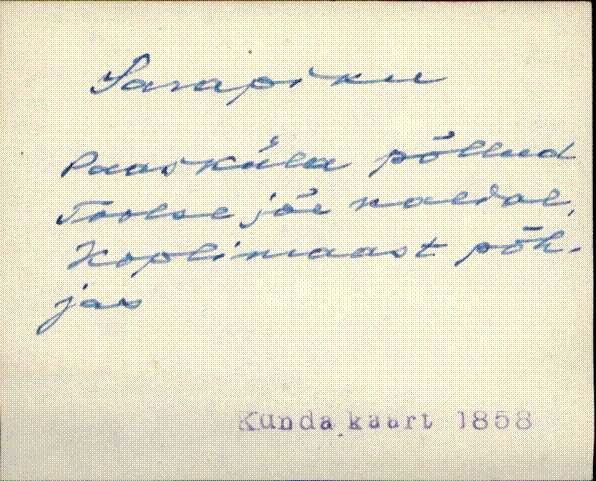 Sarapiku
Paasküla põllud
Toolse jõe kaldal,
Koplimaast põh-
jas
Kunda kaart 1858